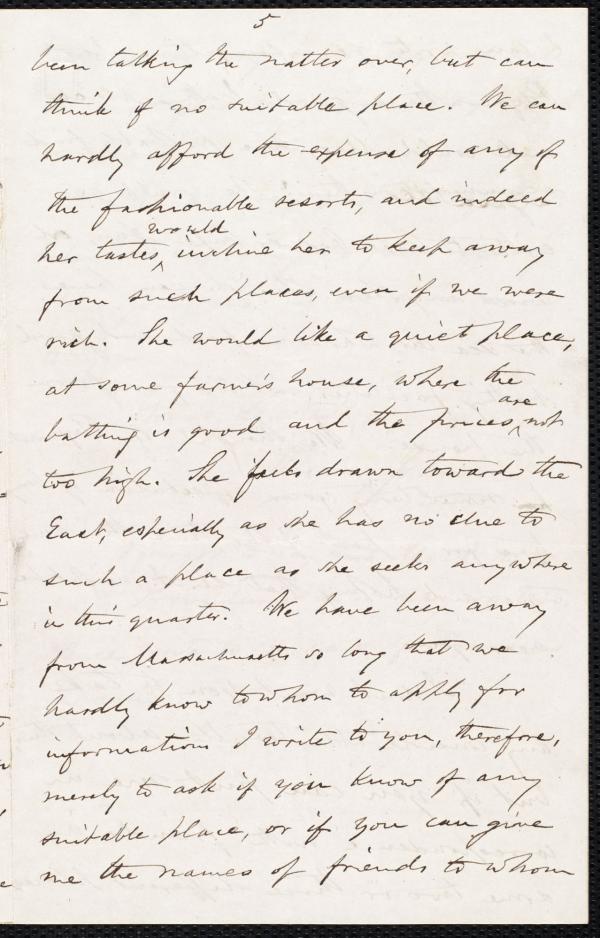 5
been talking the matter over, but can
think of no suitable place. We can
hardly afford the expense of any of
the fashionable resorts, and indeed
would
her tastes, ‸ incline her to keep away
from such places, even if we were
rich. She would like a quiet place,
at some farmer's house, where the
are
bathing is good and the prices ‸ not
too high. She feels drawn toward the
East, especially as she has no clue to
such a place as she seeks anywhere
in this quarter. We have been away
from Massachusetts so long that we
hardly know to whom to apply for
information. I write to you, therefore,
merely to ask if you know of any
suitable place, or if you can give
me the names of friends to whom